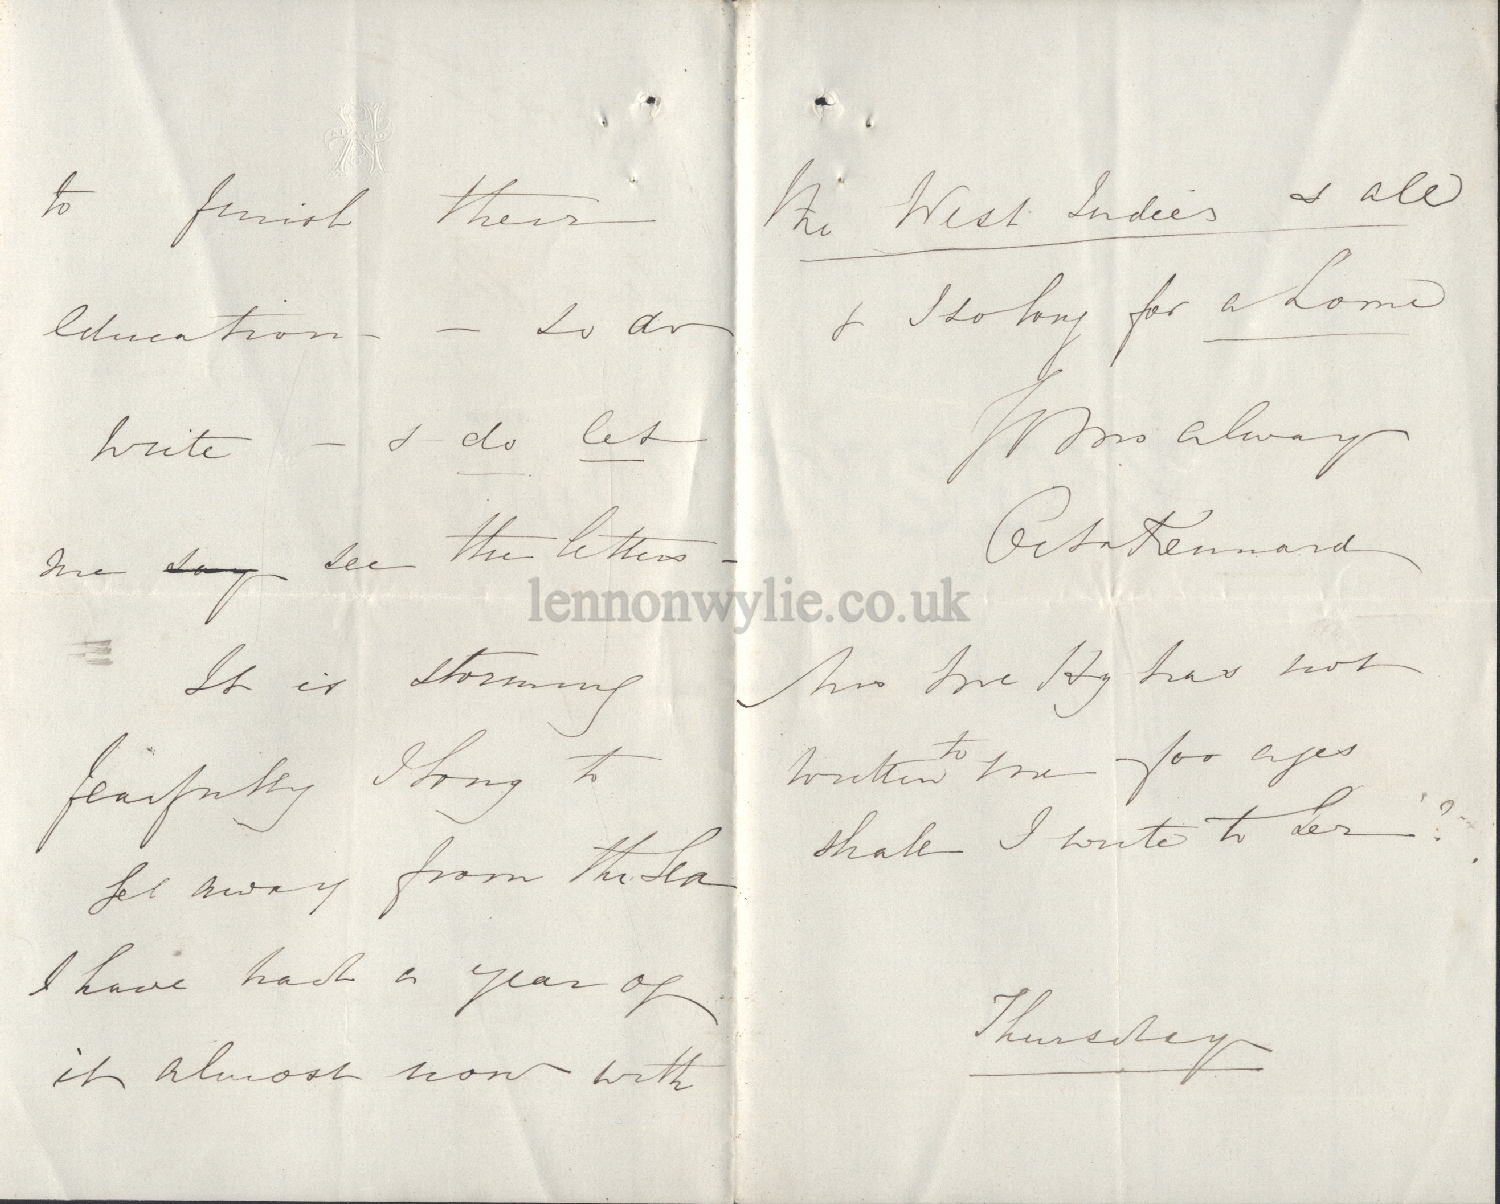 to finish their
education - so do
write - & do let
me say see the letters -
It is storming
fearfully I long to
get away from the Sea
I have had a year of
it almost now with
the West Indies & all
& I so long for a home
Yrs always
Kennard
Mrs Hy has not
written to me for ages
shall I write to her ?
Thursday
lennonwylie.co.uk